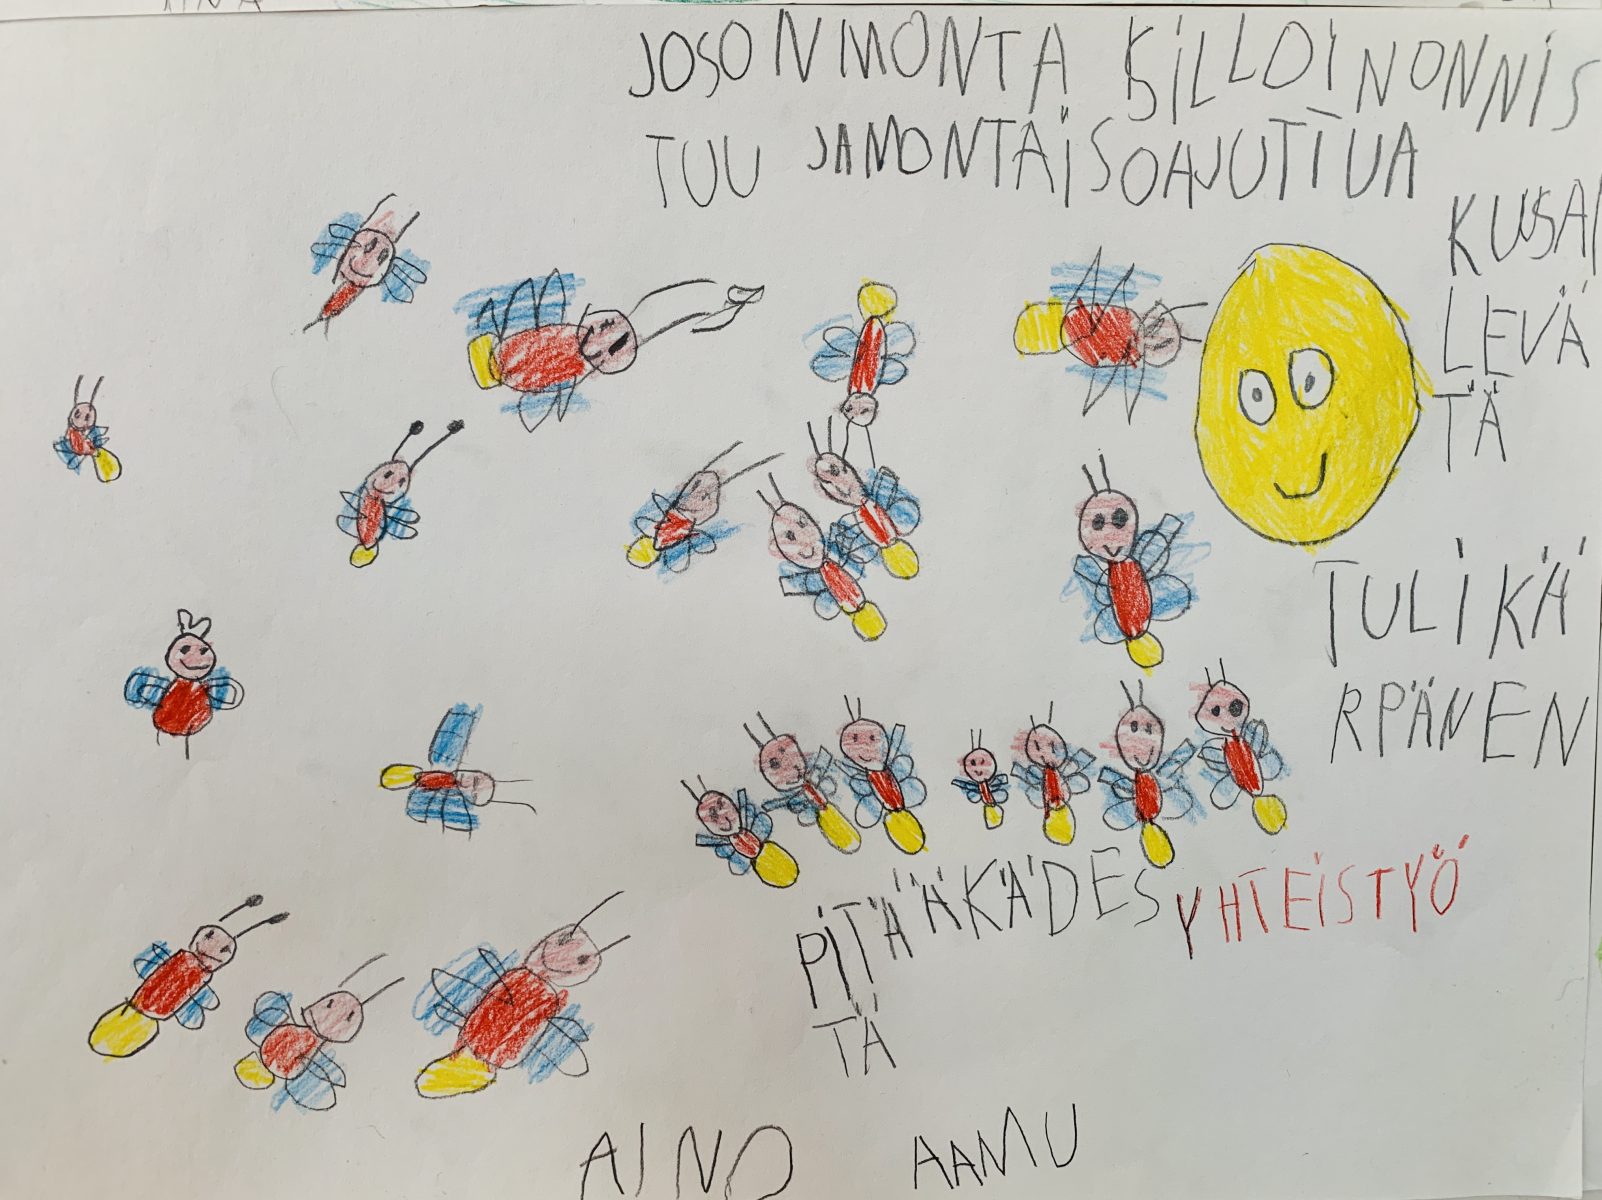 JOSONMONTA SILLOINONNIS
TUU JAMONTAISOAJUTTUA
KUSAI
LEVÄ
TÄ
TULIKÄ
RPÄNEN
PITÄÄKÄDES YHTEISTYÖ
TÄ
AINO AAMU